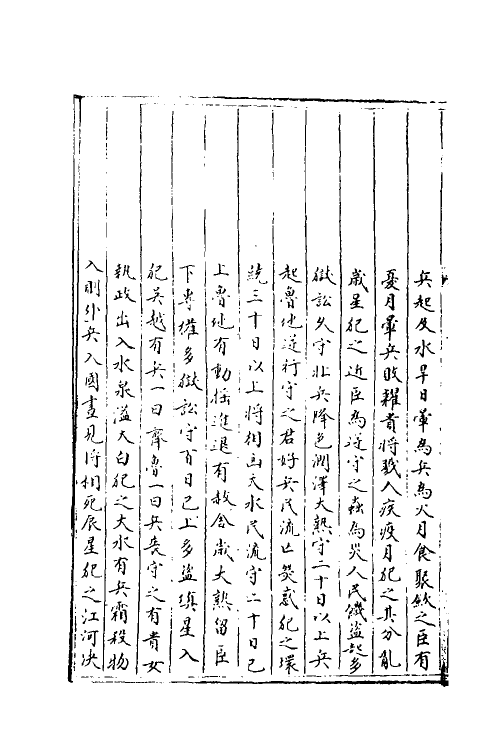 兵起及水旱日暈為兵為火月食聚斂之臣有
憂月暈兵敗糴貴將戮人疾疫月犯之其分亂
歲星犯之近臣為逆守之蟲為災人民饑盜起多
獄訟久守北兵降色潤澤大熟守二十日以上兵
起魯地逆行守之君好兵民流亡熒惑犯之環
繞三十日以上將相凶大水民流守二十日已
上魯地有動搖進退有赦舍歲大熟留臣
下專權多獄訟守百日已上多盜填星入
犯吳越有兵一曰齊魯一曰兵喪守之有貴女
執政出入水泉溢太白犯之大水有兵霜殺物
入則外兵入國晝見將相死辰星犯之江河決